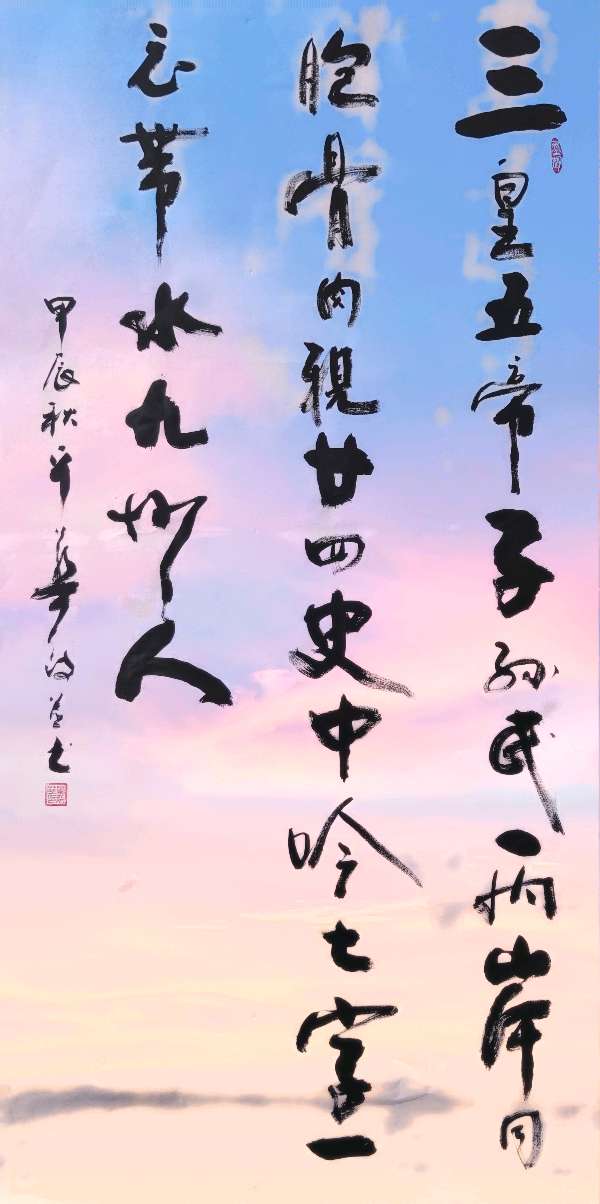 三皇五帝子孙民两岸同
胞骨肉親廿四史中吟七一
衣带水九州人
甲辰秋華书